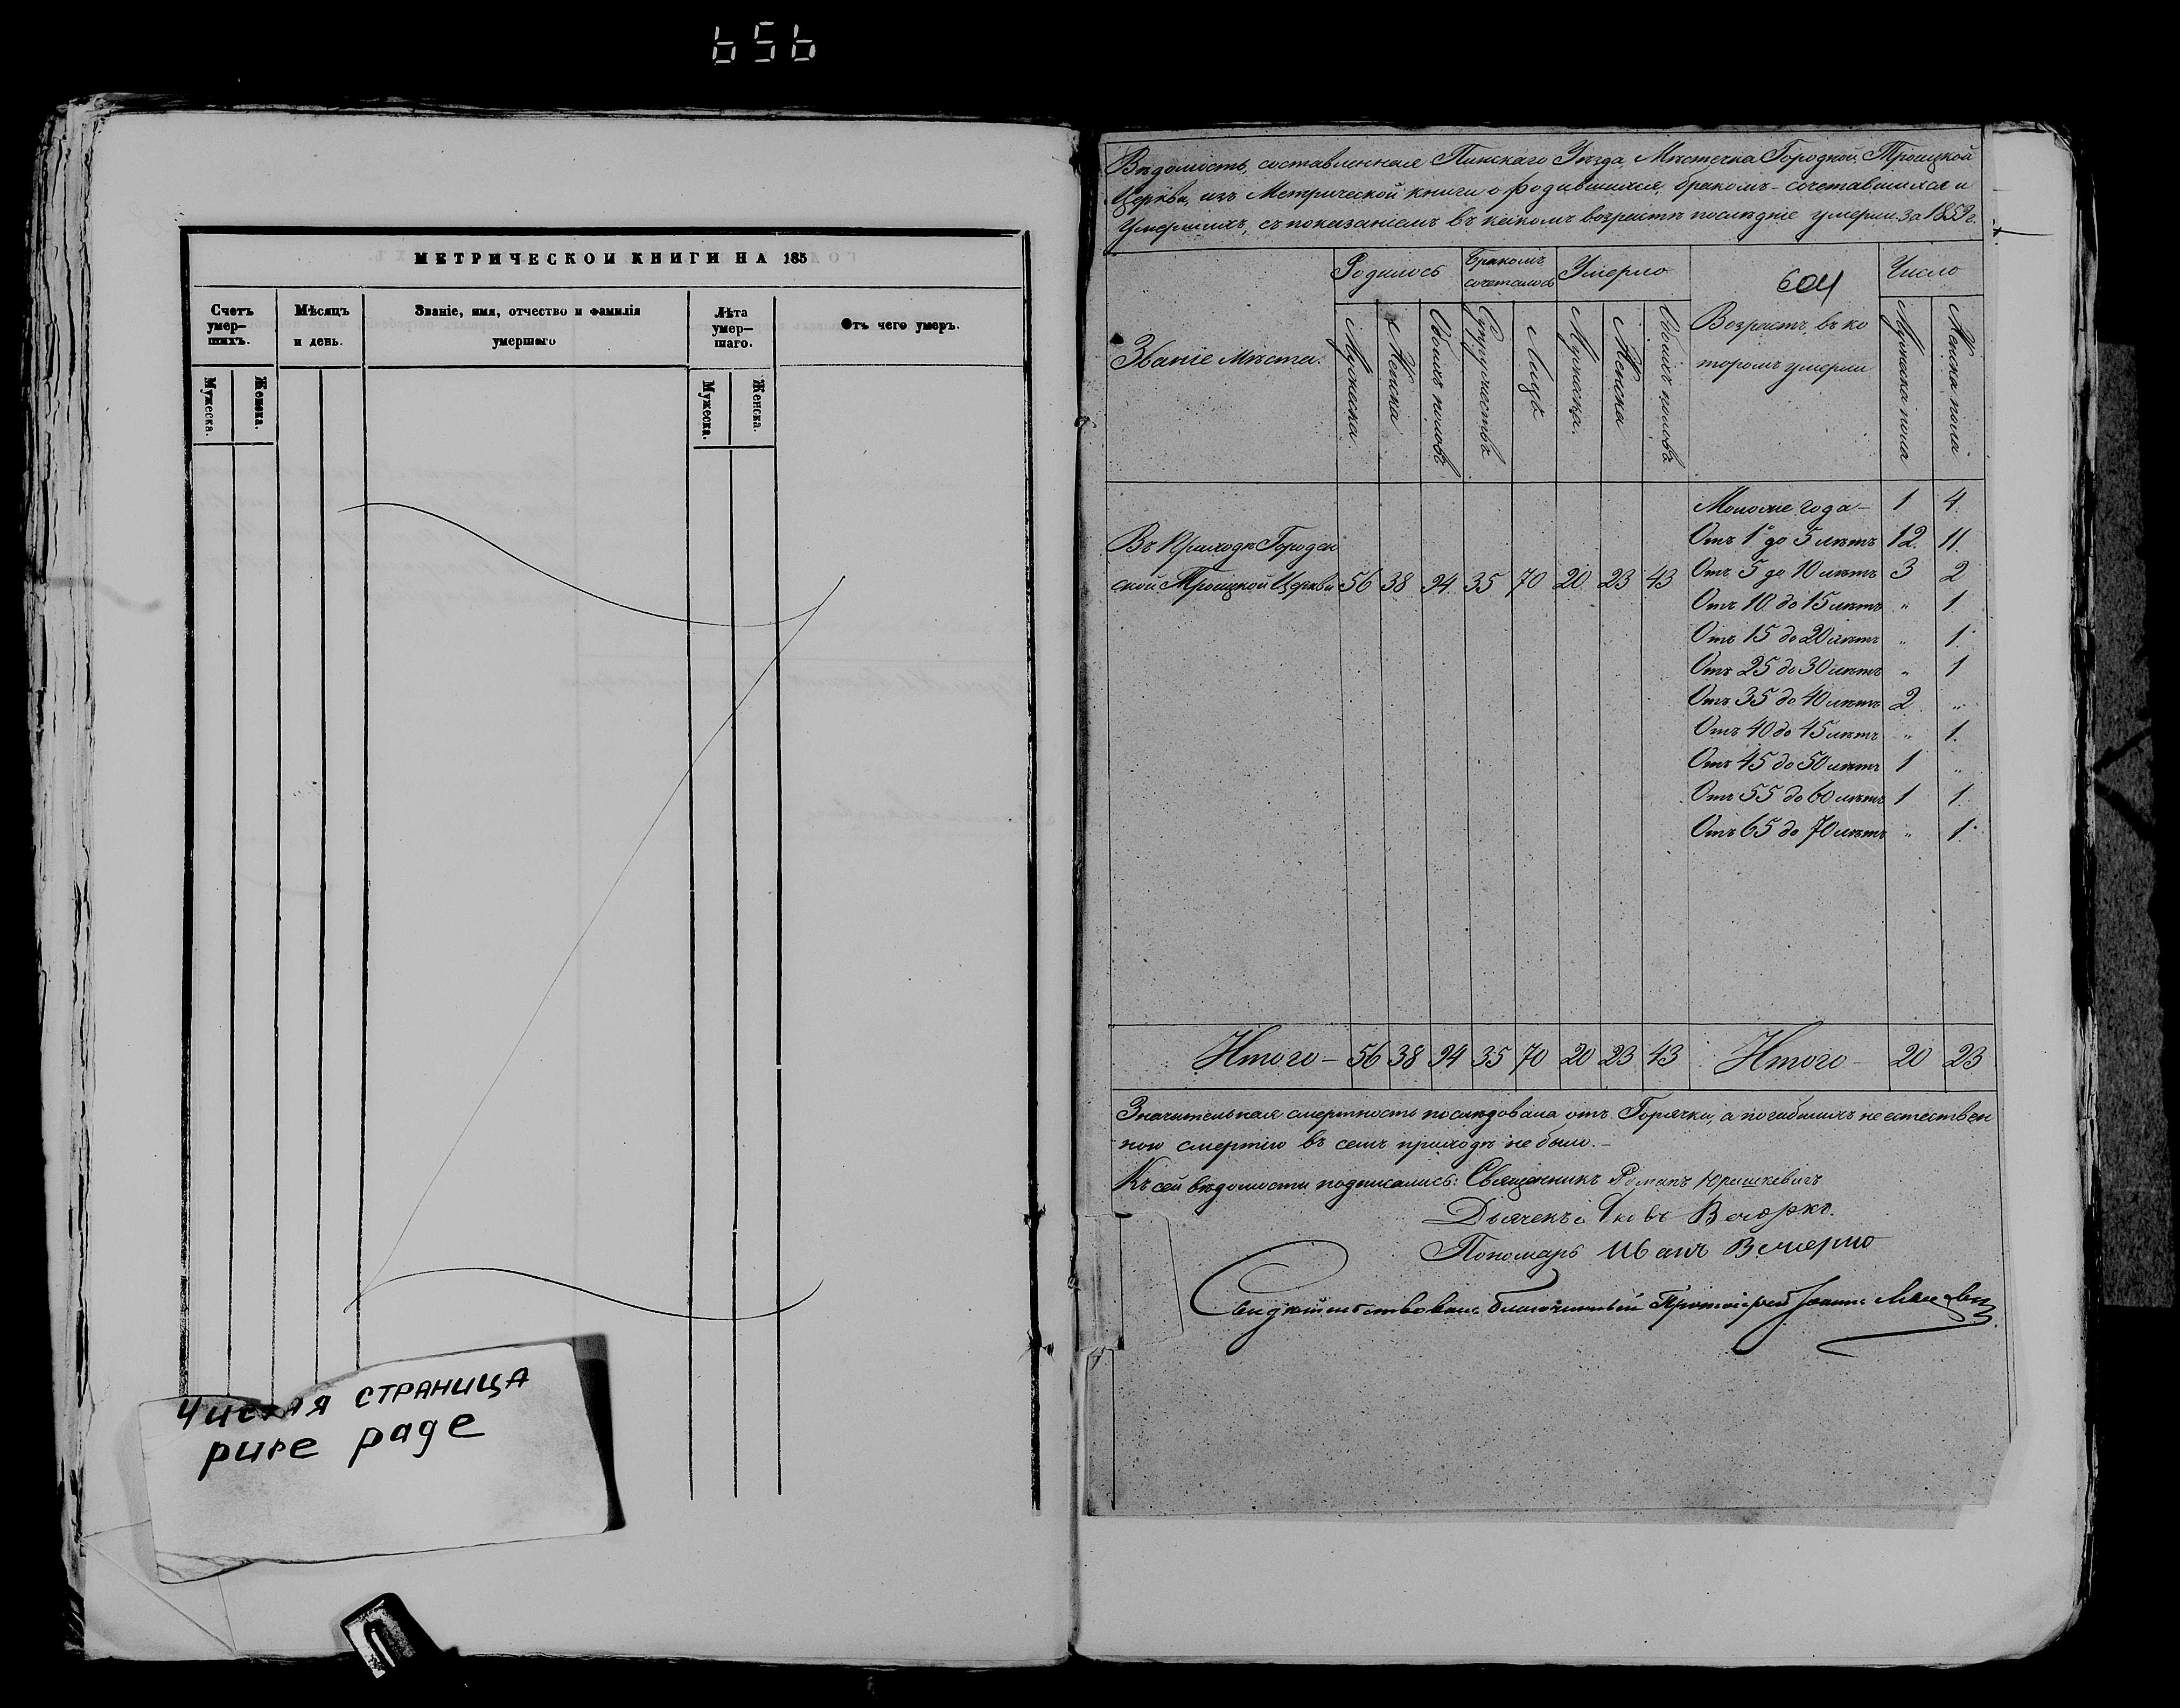 656
МЕТРИЧЕСКОИ КНИГИ НА 185
Счетъ умер-шихъ.
Мѣсяцъ и день.
Званіе, имя, отчество и фамилія умершаго
Лѣта умер-шаго.
Отъ чего умеръ.
Мужеска.
Женска.
Мужеска.
Женска.
Чистая страница
pure page
Вѣдомость, составленная Пинскаго Уѣзда, Мѣстечка Городной, Троицкой
Церкви, изъ Метрической книги о родившихся, бракомъ-сочетавшихся и
Умершихъ, съ показаніемъ въ какомъ возрастѣ послѣдніе умерли. За 1859 г.
Званіе Мѣста.
Родилось
Бракомъ сочеталось
Умерло
604
Возрастъ, въ ко
торомъ умерли
Число
Мужеска
Женска
Обоихъ половъ
Супружествъ
Лицъ
Мужеска.
Женска
Обоихъ половъ
Мужеска пола
Женска пола
Моложе года – 1 4.
Отъ 1 до 5 лѣтъ 12. 11.
Въ Приходѣ Городен
ской Троицкой Церкви 56 38 94. 35 70 20. 23 43
Отъ 5 до 10 лѣтъ 3 2
Отъ 10 до 15 лѣтъ „ 1.
Отъ 15 до 20 лѣтъ „ 1.
Отъ 25 до 30 лѣтъ „ 1
Отъ 35 до 40 лѣтъ 2. „
Отъ 40 до 45 лѣтъ „ 1.
Отъ 45 до 50 лѣтъ 1 „
Отъ 55 до 60 лѣтъ 1 1.
Отъ 65 до 70 лѣтъ „ 1.
Итого – 56 38 94 35 70 20 23 43 Итого – 20 23
Значительная смертность послѣдовала отъ Горячки, а погибшихъ неестествен
ною смертію въ семъ приходѣ не было. –
Къ сей вѣдомости подписались: Священникъ Романъ Юрашкевичъ
Дьячекъ Яковъ Вечорко.
Пономарь Иванъ Вечерко
Свидѣтельствовалъ благочинный Протоіерей Іоаннъ